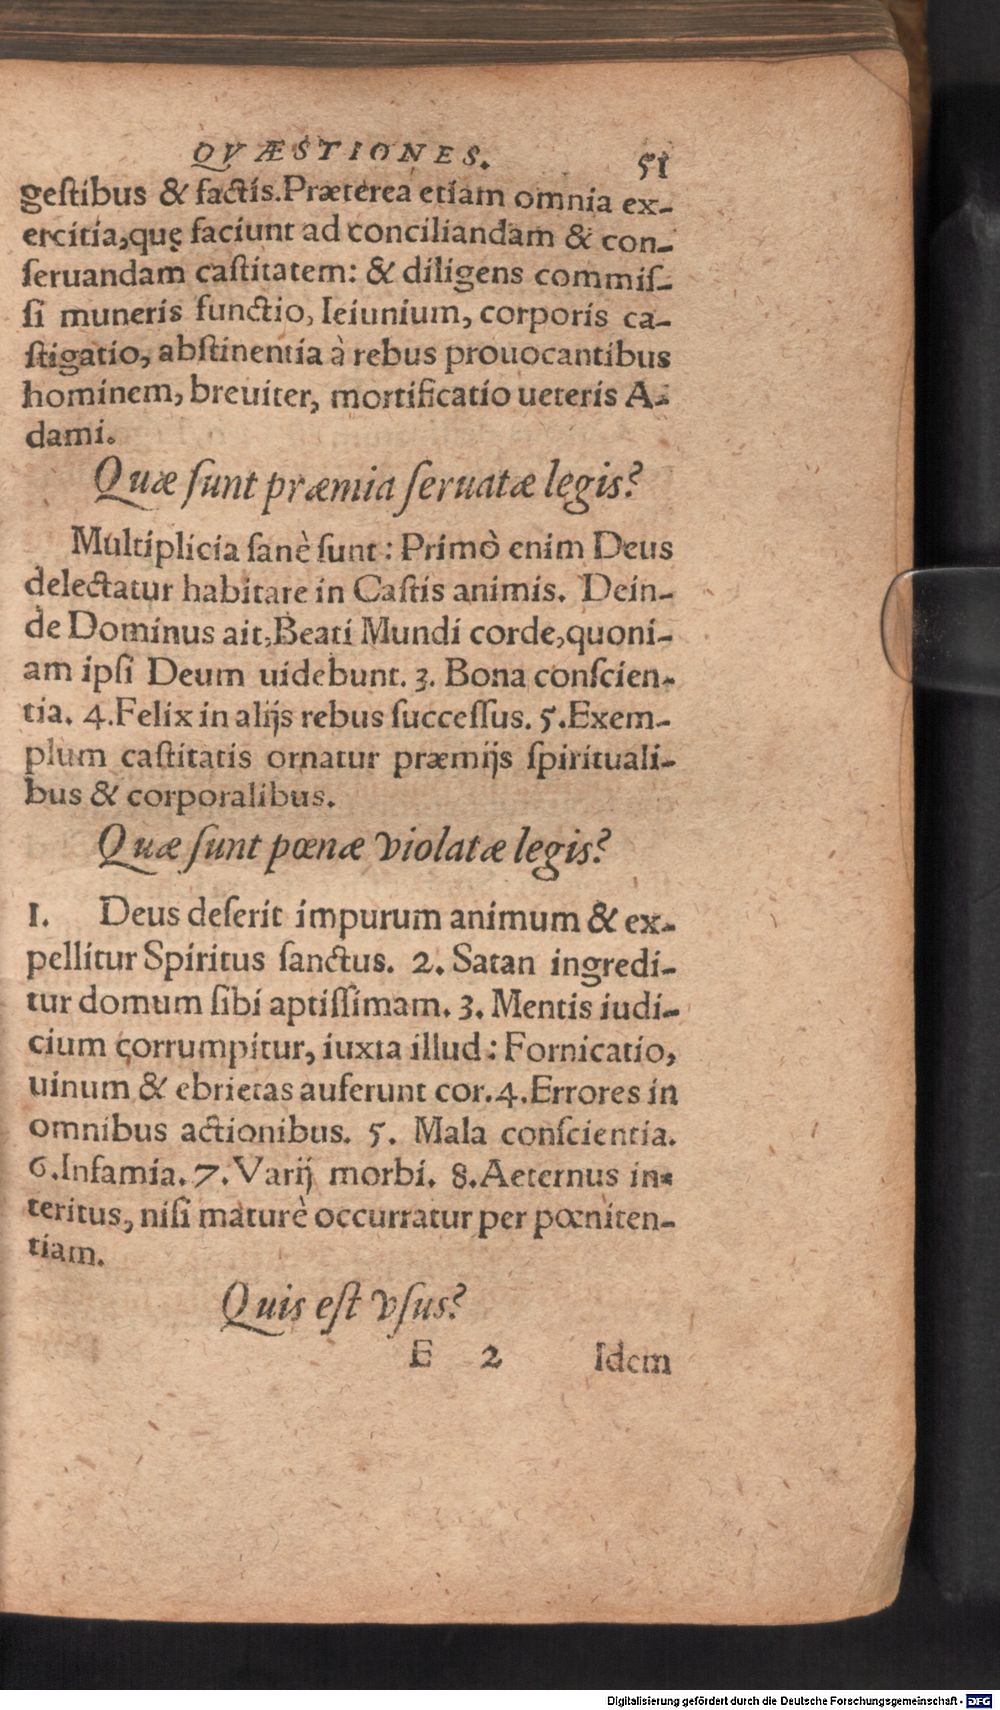 QVÆSTIONES. 51
geſtibus & factis. Præterea etiam omnia ex-
ercitia, quę faciunt ad conciliandam & con-
ſeruandam caſtitatem: & diligens commiſ-
ſi muneris functio, Ieiunium, corporis ca-
ſtigatio, abſtinentia à rebus prouocantibus
hominem, breuiter, mortificatio ueteris A-
dami.
Quæ ſunt præmia ſeruatæ legis?
Multiplicia ſanè ſunt: Primò enim Deus
delectatur habitare in Caſtis animis. Dein-
de Dominus ait, Beati Mundi corde, quoni-
am ipſi Deum uidebunt. 3. Bona conſcien-
tia. 4. Felix in alijs rebus ſucceſſus. 5. Exem-
plum caſtitatis ornatur præmijs ſpirituali-
bus & corporalibus.
Quæ ſunt pœnæ violatæ legis?
1. Deus deſerit impurum animum & ex-
pellitur Spiritus ſanctus. 2. Satan ingredi-
tur domum ſibi aptiſſimam. 3. Mentis iudi-
cium corrumpitur, iuxta illud: Fornicatio,
uinum & ebrietas auferunt cor. 4. Errores in
omnibus actionibus. 5. Mala conſcientia.
6. Infamia. 7. Varij morbi. 8. Aeternus in-
teritus, niſi maturè occurratur per pœniten-
tiam.
Quis eſt vſus?
E 2 Idem
Digitalisierung gefördert durch die Deutsche Forschungsgemeinschaft - DFG